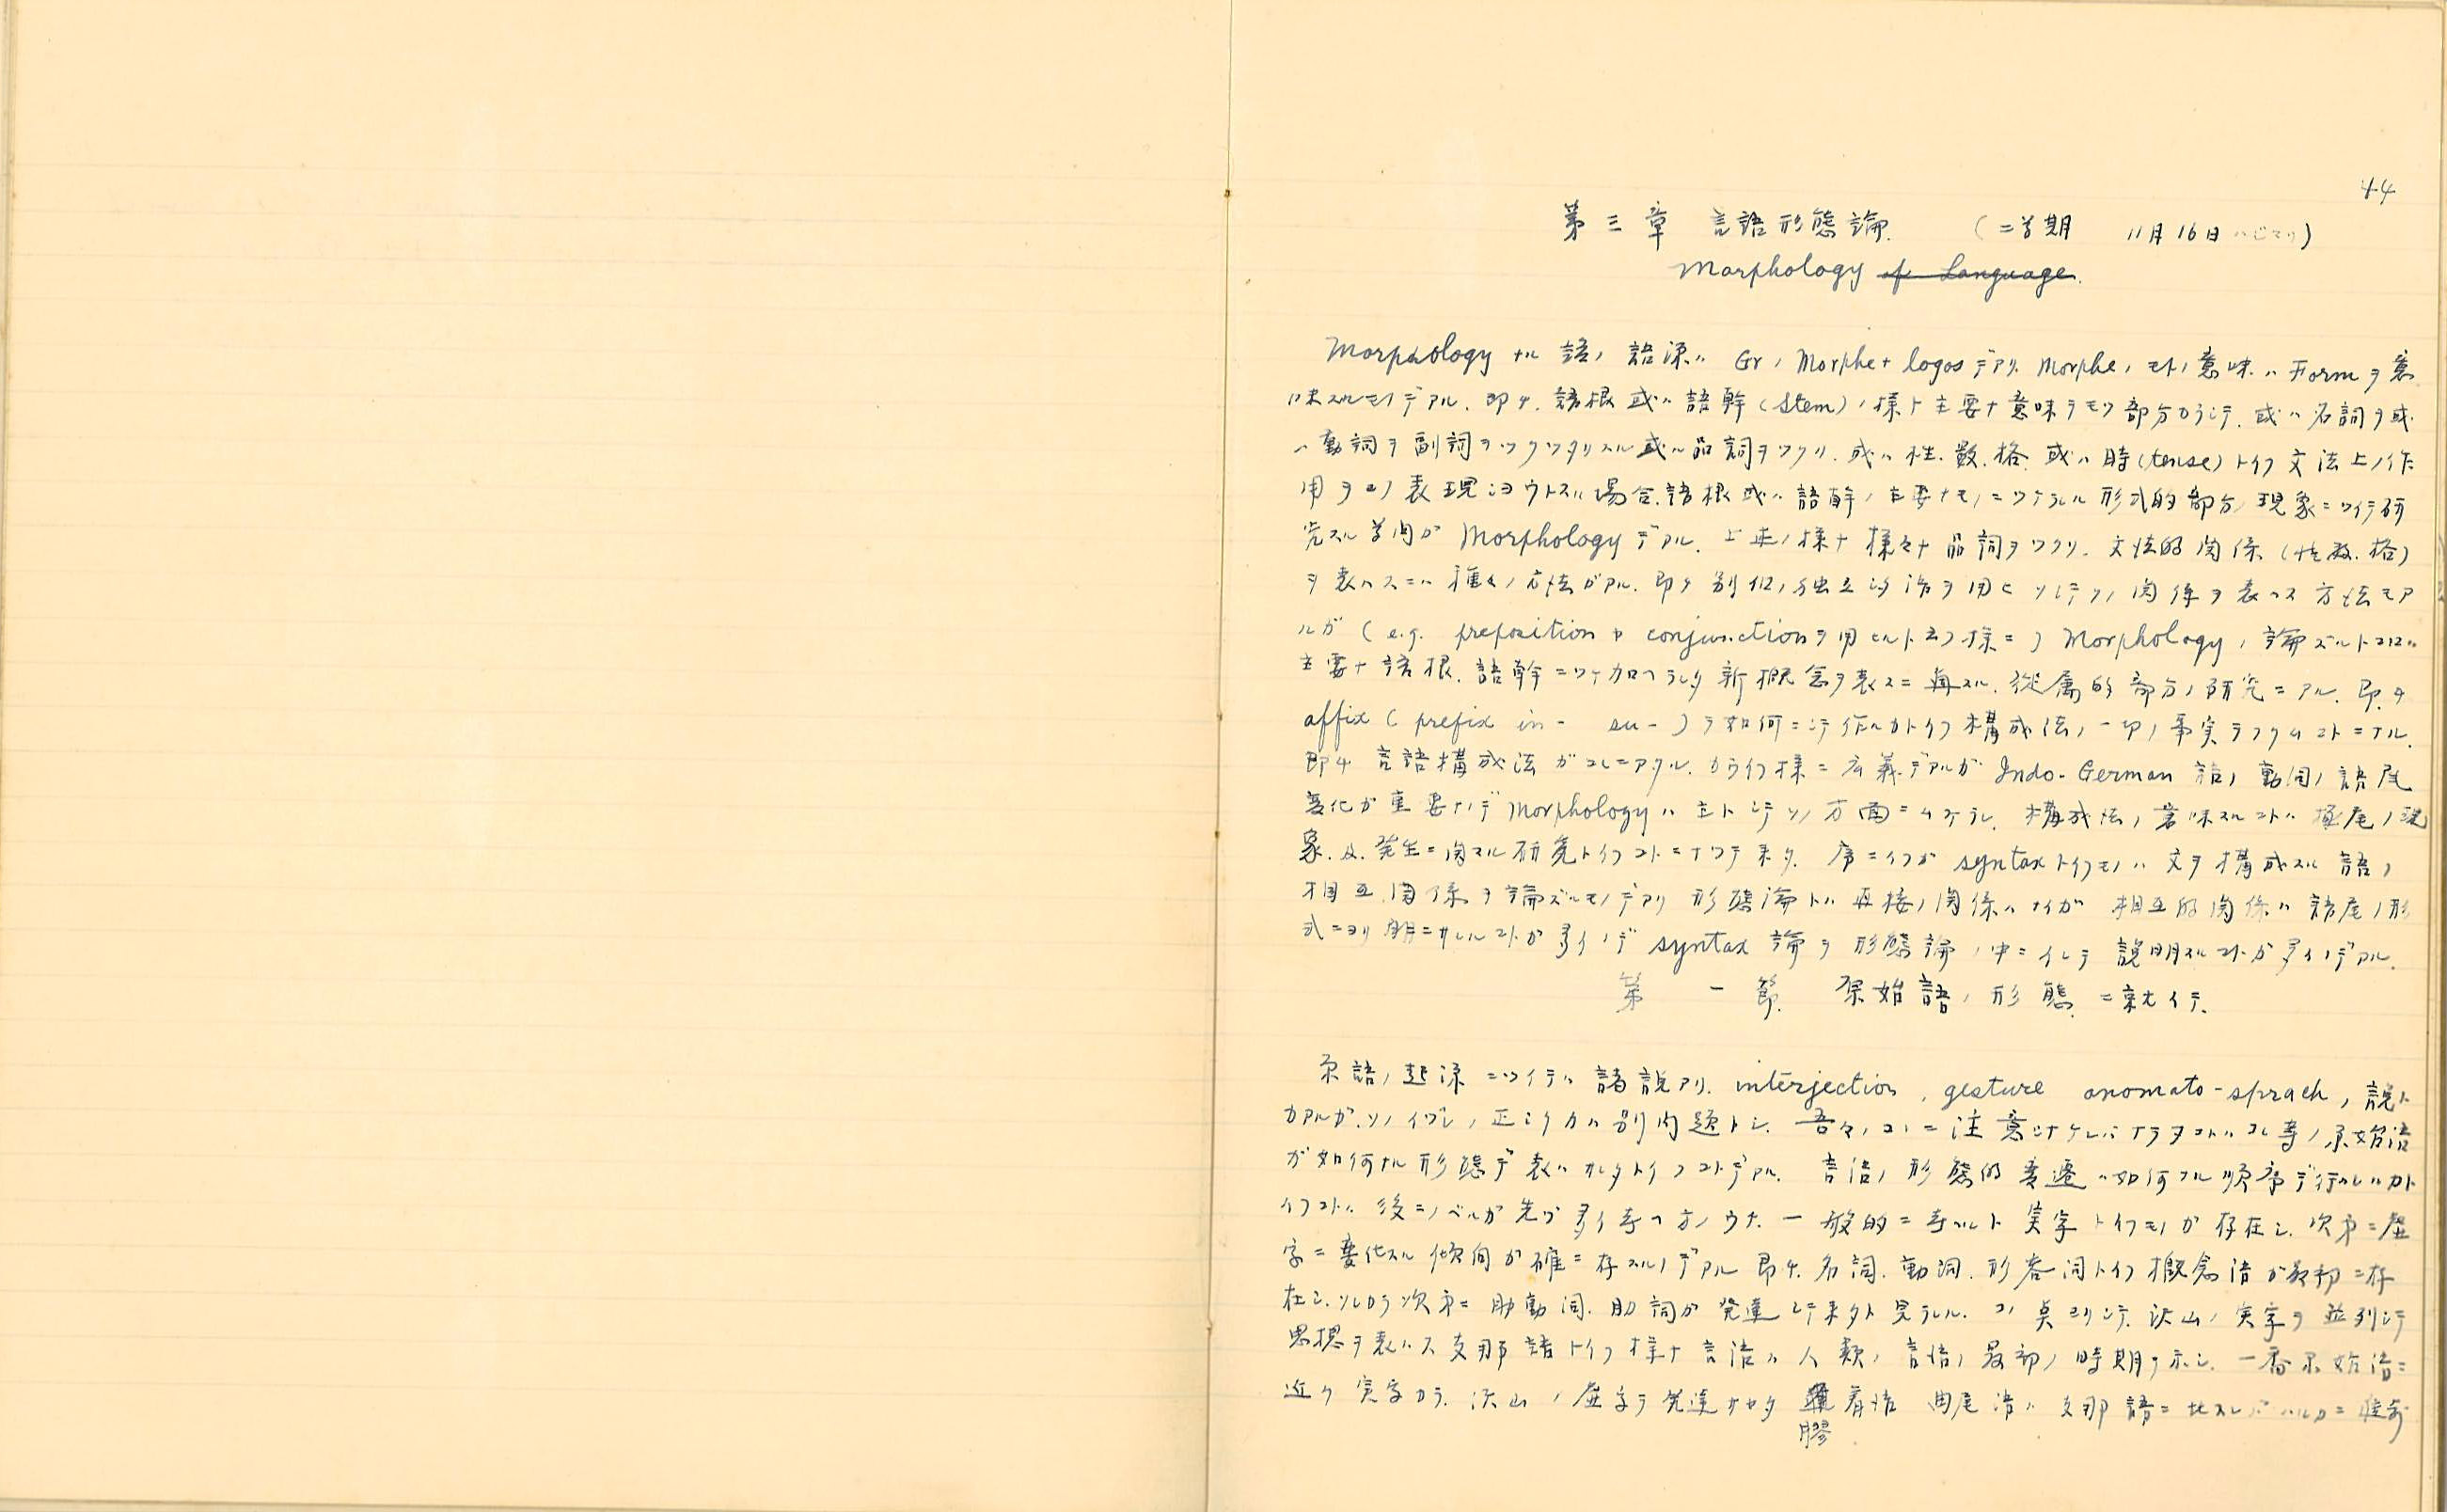 44
第三章 言語形態論. (二学期 11月16日ハジマリ)
Morphology of Language.
Morphology ナル語ノ語源ハ Gr ノ Morphe + logos デアリ Morphe ノモトノ意味ハ Form ヲ意
味スルモノデアル. 即チ. 語根或ハ語幹(Stem)ノ様ナ主要ナ意味ヲモツ部分カラシテ. 或ハ名詞ヲ或
ハ動詞ヲ副詞ヲツクツタリスル或ハ品詞ヲツクリ. 或ハ性. 数. 格. 或ハ時(tense)トイフ文法上ノ作
用ヲコノ表現シヨウトスル場合. 語根或ハ語幹ノ主要ナモノニツケラレル形式的部分ノ現象ニツイテ研
究スル学問ガ Morphology デアル. 上述ノ様ナ様々ナ品詞ヲツクリ. 文法的関係(性. 数. 格)
ヲ表ハスニハ種々ノ方法ガアル. 即チ別個ノ独立的語ヲ用ヒソシテソノ関係ヲ表ハス方法モア
ルガ (e.g. preposition ヤ conjunction ヲ用ヒルト云フ様ニ) Morphology ノ論ズルトコロハ
主要ナ語根. 語幹ニツケ加ヘラレタ新概念ヲ表スニ与スル. 従属的部分ノ研究ニアル. 即チ
affix (prefix in- su-) ヲ如何ニシテ作ルカトイフ構成法ノ一切ノ事実ヲフクムコトニナル.
即チ言語構成法ガコレニアタル. カライフ様ニ広義デアルガ Indo-German 語ノ動詞ノ語尾
変化ガ重要ナノデ Morphology ハ主トシテソノ方面ニムケラレ. 構成法ノ意味スルコトハ接尾ノ現
象. 及. 発生ニ関スル研究トイフコトニナツテ来タ. 序ニイフガ syntax トイフモノハ文ヲ構成スル語ノ
相互関係ヲ論ズルモノデアリ形態論トハ直接ノ関係ハナイガ 相互的関係ハ語尾ノ形
式ニヨリ明ニサレルコトガ多イノデ syntax 論ヲ形態論ノ中ニイレテ説明スルコトガ多イノデアル.
第一節 原始語ノ形態ニ就イテ.
原語ノ起源ニツイテハ諸説アリ. interjection, gesture onomato-sprach, 説ト
カアルガ. ソノイヅレノ正シクカハ別問題トシ. 吾々ノコヽニ注意シナケレバナラヌコトハコレ等ノ原始語
ガ如何ナル形態デ表ハサレタトイフコトデアル. 言語ノ形態的変遷ハ如何ナル順序デ行ハレルカト
イフコトハ後ニノベルガ先ヅ多イ考ヘ方ノウチ. 一般的ニ考ヘルト実字トイフモノガ存在シ. 次第ニ虚
字ニ変化スル傾向ガ確ニ存スルノデアル 即チ. 名詞. 動詞. 形容詞トイフ概念語ガ最初ニ存
在シ. ソレカラ次第ニ助動詞. 助詞ガ発達シテ来タト見ラレル. コノ点ヨリシテ. 沢山ノ実字ヲ並列シテ
思想ヲ表ハス支那語トイフ様ナ言語ハ人類ノ言語ノ最初ノ時期ヲ示シ. 一番原始語ニ
近ク実字カラ. 沢山ノ虚字ヲ発達サセタ 着語 曲尾語ハ支那語ニ比スレバハルカニ
膠